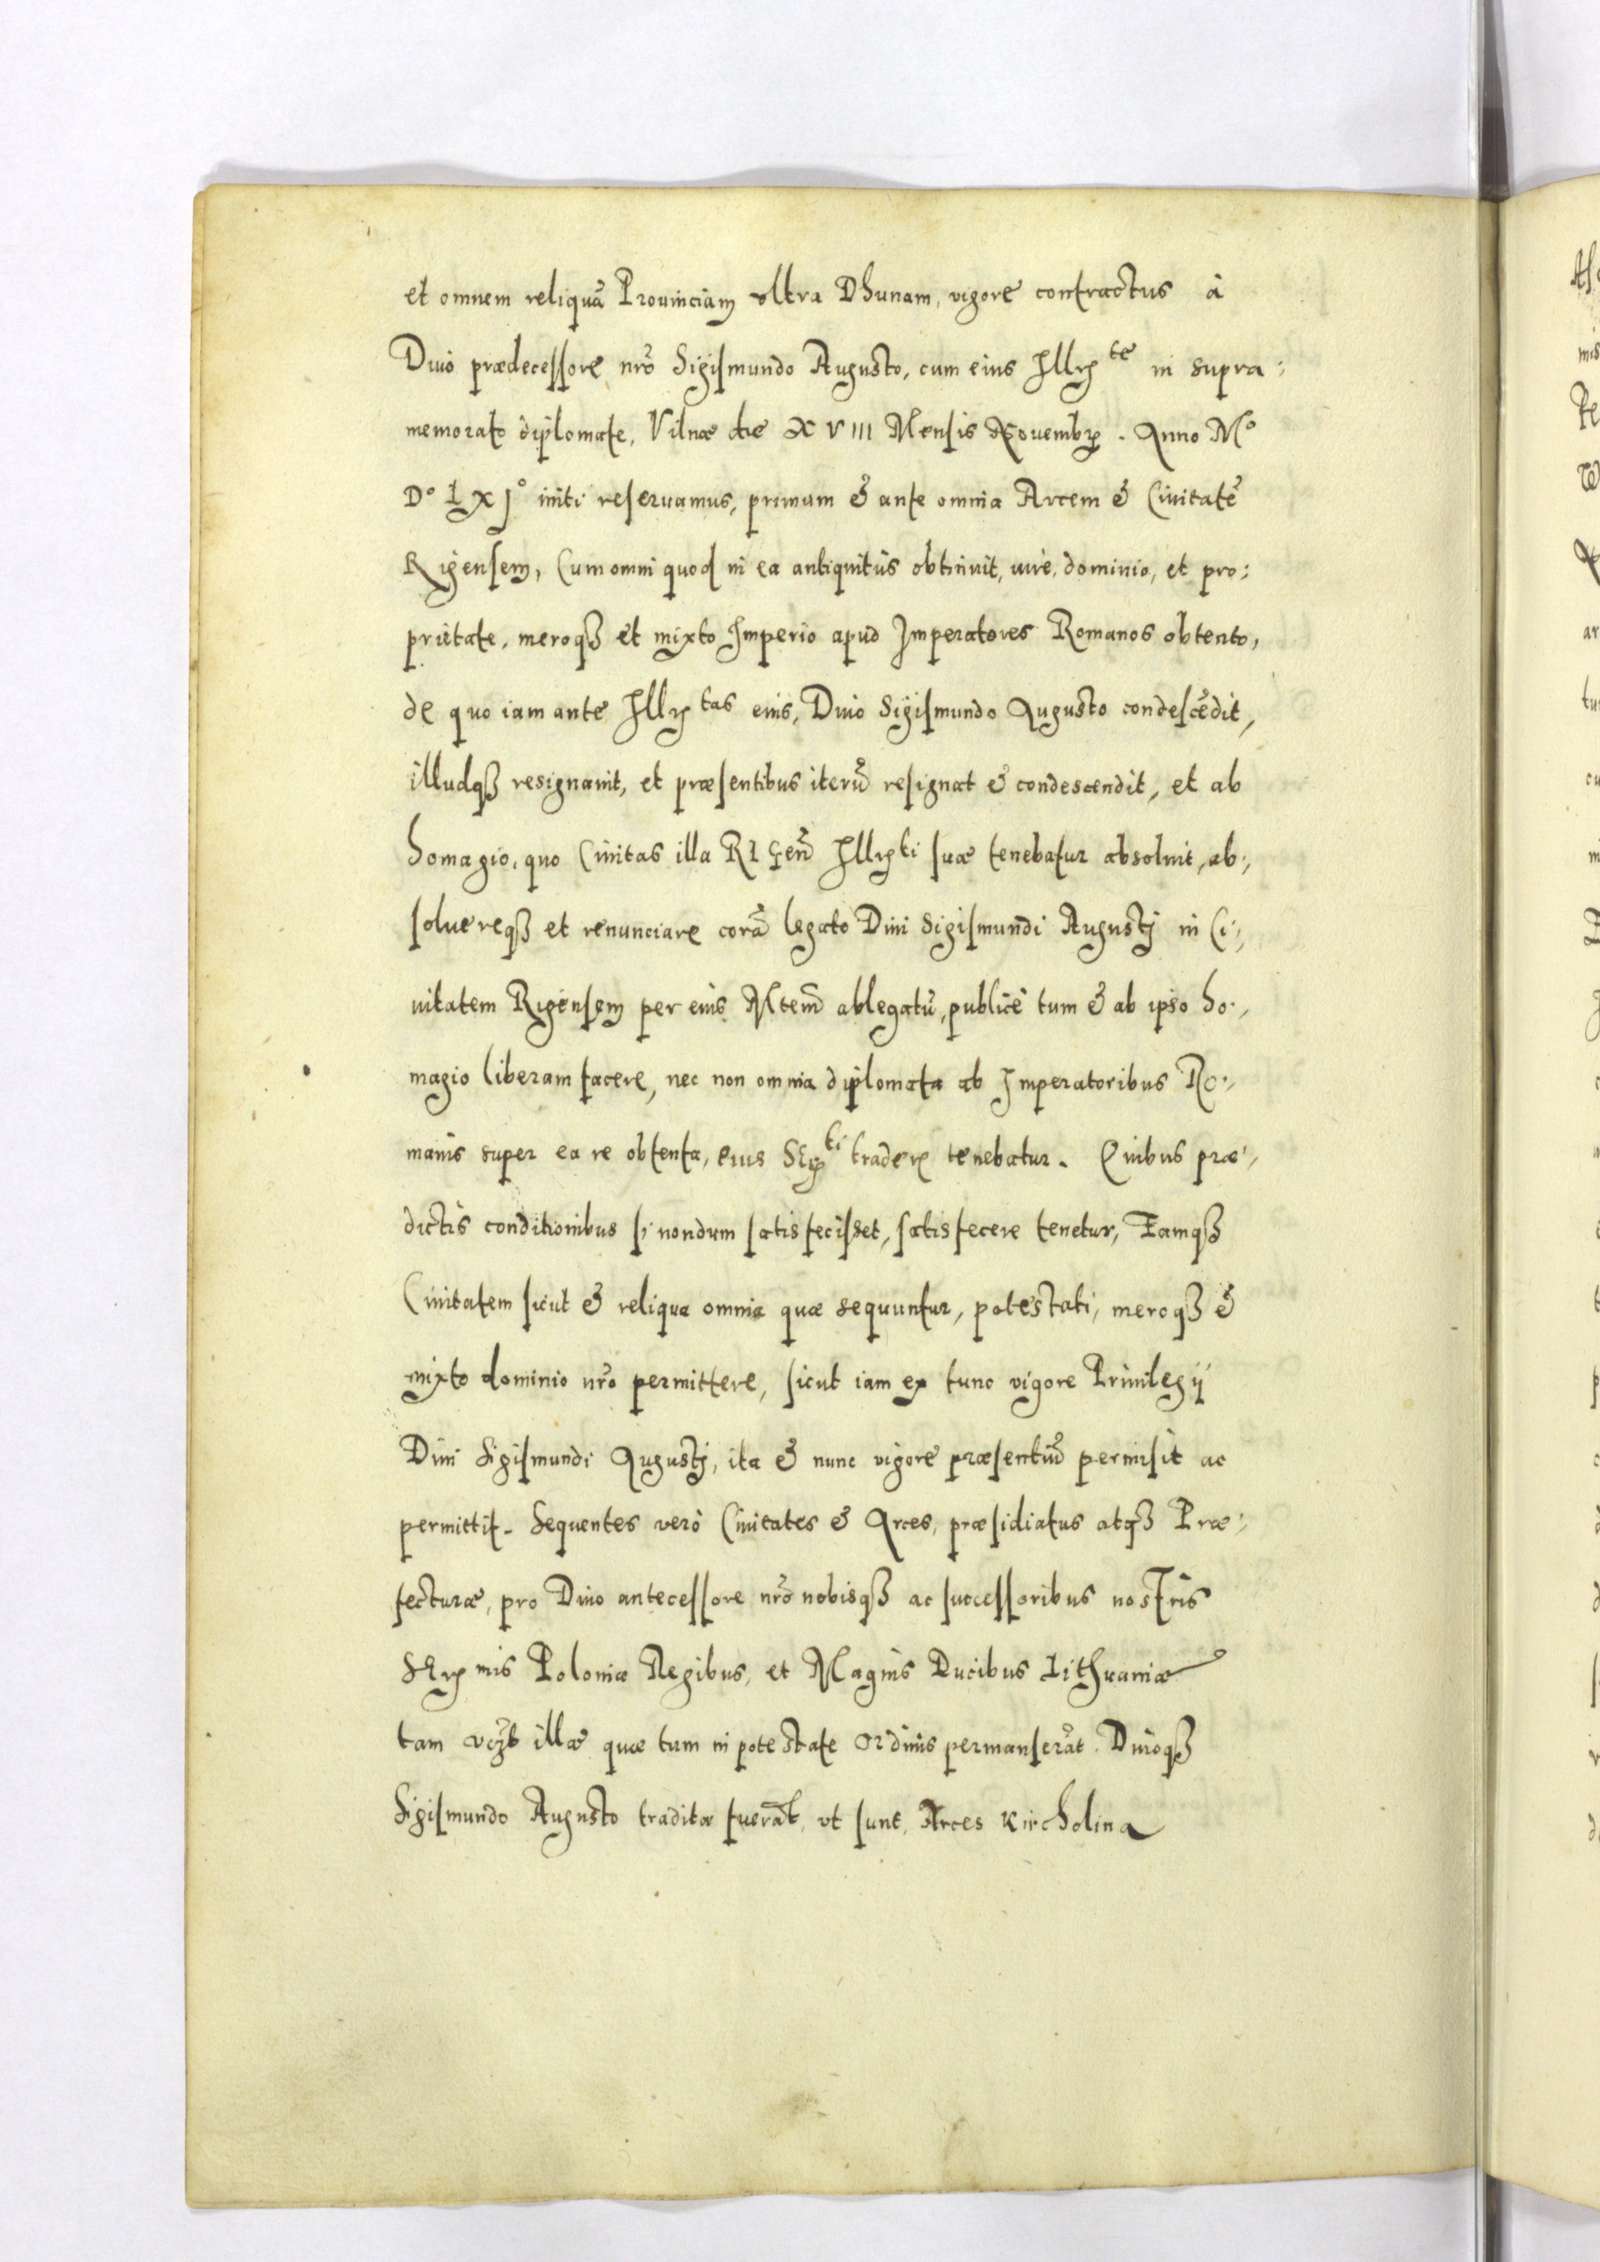 et omnem reliquā Prouinciam vltra Dhunam, vigore contractus à
Diuo prædecessore nr̃o Sigismundo Augusto, cum eius Illr̃te in supra:
memorato diplomate, Vilnæ die XVIII Mensis Nouembr̃. Anno Mº
Dº LXJº initi reseruamus, primum & ante omnia Arcem & Ciuitatē
Rigensem, Cum omni quod in ea antiquitùs obtinuit, iure, dominio, et pro:
prietate, meroqꝫ et mixto Imperio apud Imperatores Romanos obtento,
de quo iam ante Illr̃tas eius, Diuo Sigismundo Augusto condescēdit,
illudqꝫ resignauit, et præsentibus iterū resignat & condescendit, et ab
homagio, quo Ciuitas illa RIgeñ Illr̃ti suæ tenebatur absoluit, ab:
soluereqꝫ et renunciare corā legato Diui Sigismundi Augustj in Ci:
uitatem Rigensem per eius Mtem̃ ablegatū, publicè tum & ab ipso ho:
magio liberam facere, nec non omnia diplomata ab Imperatoribus Ro:
manis super ea re obtenta, eius Sr̃ti tradere tenebatur. Quibus præ:
dictis conditionibus si nondum satisfecisset, satisfacere tenetur, Eamqꝫ
Ciuitatem sicut & reliqua omnia quæ sequuntur, potestati, meroqꝫ &
mixto dominio nr̃o permittere, sicut iam ex tunc vigore Priuilegij
Diui Sigismundi Augustj, ita & nunc vigore præsentiū permisit ac
permittit. Sequentes verò Ciuitates & Arces, præsidiatus atqꝫ Præ:
fecturæ, pro Diuo antecessore nr̃o nobisqꝫ ac successoribus nostris
SEr̃mis Poloniæ Regibus, et Magnis Ducibus Lithuaniæ
tam illæ quæ tum in potestate Ordinis permanserāt Diuoqꝫ
Sigismundo Augusto traditæ fuerāt, vt sunt, Arces Kircholina